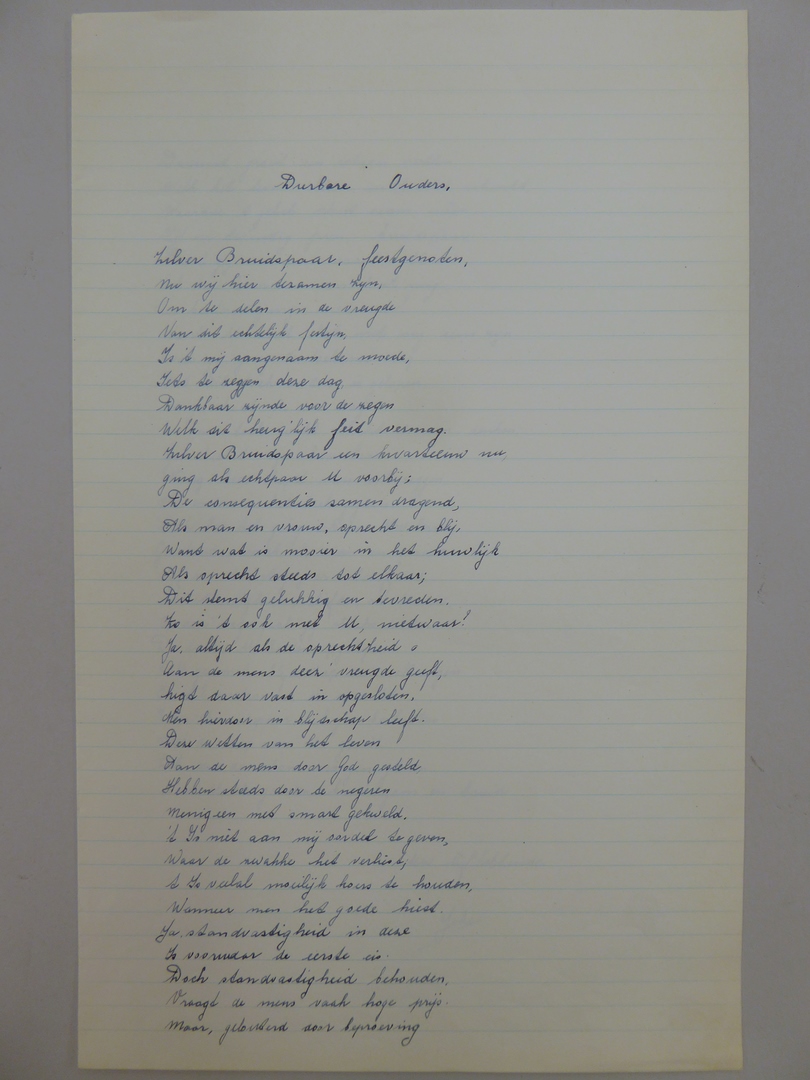 Durbare Ouders,
Zilver Bruidspaar, feestgenoten,
Nu wij hier tezamen zijn,
Om te delen in de vreugde
Van dit echtelijk festijn,
Is 't mij aangenaam te moede,
Iets te zeggen deze dag.
Dankbaar zijnde voor de zegen
Welk dit heug'lijk feit vermag.
Zilver Bruidspaar een kwarteeuw nu,
ging als echtpaar U voorbij;
De consequenties samen dragend,
Als man en vrouw, oprecht en blij,
Want wat is mooier in het huwlijk
Als oprecht steeds tot elkaar;
Dit stemt gelukkig en tevreden.
Zo is 't ook met U, nietwaar!
Ja, altijd als de oprechtheid
Aan de mens deez' vreugde geeft,
Ligt daar vast in opgesloten,
Men hierdoor in blijdschap leeft.
Deze wetten van het leven
Aan de mens door God gesteld
Hebben steeds door te negeren
Menigeen met smart gekweld.
't Is niet aan mij oordel te geven,
Waar de zwakke het verliest;
't Is veelal moeilijk koers te houden,
Wanneer men het goede kiest.
Ja, standvastigheid in deze
Is voorwaar de eerste eis.
Doch standvastigheid behouden,
Vraagt de mens vaak hoge prijs.
Maar, gelouterd door beproeving